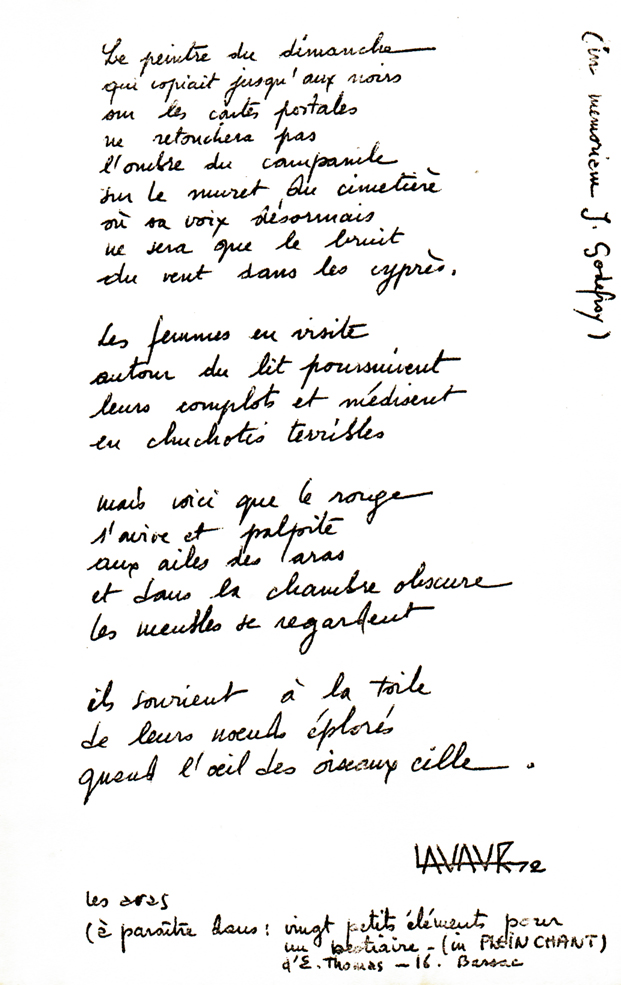 Le peintre du dimanche
qui copiait jusqu'aux noirs
sur les cartes postales
ne retouchera pas
l'ombre du campanile
sur le muret du cimetière
où sa voix désormais
ne sera que le bruit
du vent dans les cyprès.
Les femmes en visite
autour du lit poursuivent
leurs complots et médisent
en chuchotis terribles
mais voici que le rouge
s'avive et palpite
aux ailes des aras
et dans la chambre obscure
les meubles se regardent
ils sourient à la toile
de leurs nœuds éplorés
quand l'œil des oiseaux cille.
LAVAUR 72
les aras
(à paraître dans: vingt petits éléments pour
un bestiaire - (in PLEIN CHANT)
d'E. Thomas - 16. Bassac
(in memoriam J. Godefroy)